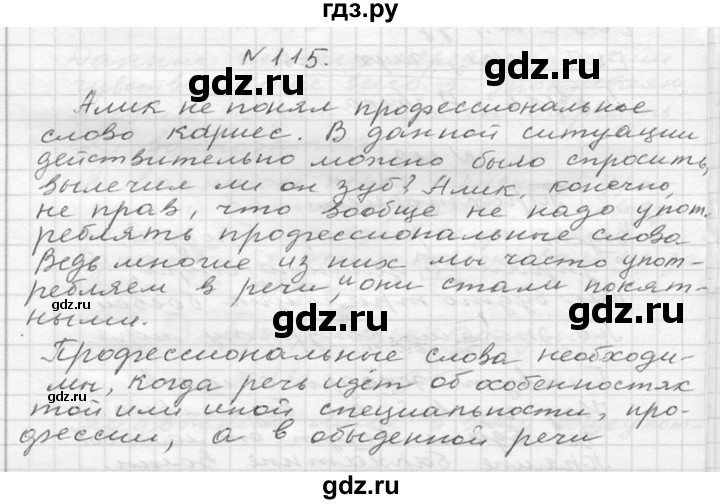 гдз.ру
№115.
Алик не понял профессиональное
слово кариес. В данной ситуации
действительно можно было спросить,
вылечил ли он зуб? Алик, конечно,
не прав, что вообще не надо упот-
реблять профессиональные слова.
Ведь многие из них мы часто упот-
ребляем в речи, и они стали понят-
ными.
Профессиональные слова необходи-
мы, когда речь идёт об особенностях
той или иной специальности, про-
фессии, а в обыденной речи
gdz.ru
gdz.ru
gdz.ru
gdz.ru
gdz.ru
gdz.ru
gdz.ru
gdz.ru
gdz.ru
gdz.ru